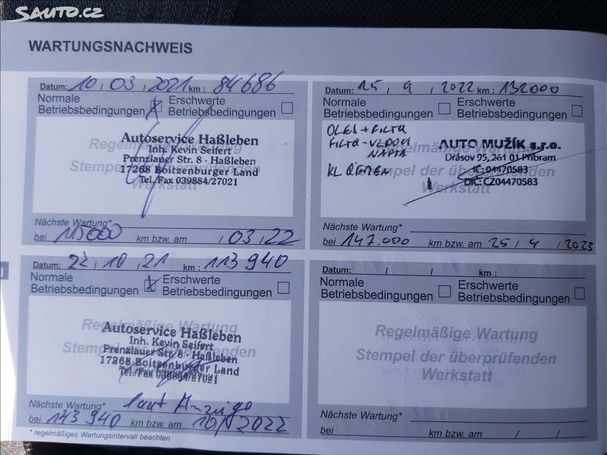 SAUTO.CZ
WARTUNGSNACHWEIS
Datum: 10, 03, 2021 km: 84686
Normale
Betriebsbedingungen
Erschwerte
Betriebsbedingungen
Autoservice Haßleben
Inh. Kevin Seifert
Prenzlauer Str. 8 · Haßleben
17268 Boitzenburger Land
Tel./Fax 039884/27021
Nächste Wartung*
bei km bzw. am / 03, 22
Datum: 15, 9, 2022 km: 132000
Normale
Betriebsbedingungen
Erschwerte
Betriebsbedingungen
OLEJ + FILTR
NAFTA
AUTO MUŽÍK s.r.o.
Drásov 95, 261 01 Příbram
IČ: 04470583
DIČ: CZ04470583
Nächste Wartung*
bei 147.000 km bzw. am 25, 4, 2023
Datum: 22, 10, 21 km: 113 940
Normale
Betriebsbedingungen
Erschwerte
Betriebsbedingungen
Autoservice Haßleben
Inh. Kevin Seifert
Prenzlauer Str. 8 · Haßleben
17268 Boitzenburger Land
Tel./Fax 039884/27021
Nächste Wartung* laut Anzeige
bei 143 940 km bzw. am 10/ 2022
* regelmäßiges Wartungsintervall beachten
Datum: / / km:
Normale
Betriebsbedingungen
Erschwerte
Betriebsbedingungen
Regelmäßige Wartung
Stempel der überprüfenden
Werkstatt
Nächste Wartung*
bei km bzw. am / /